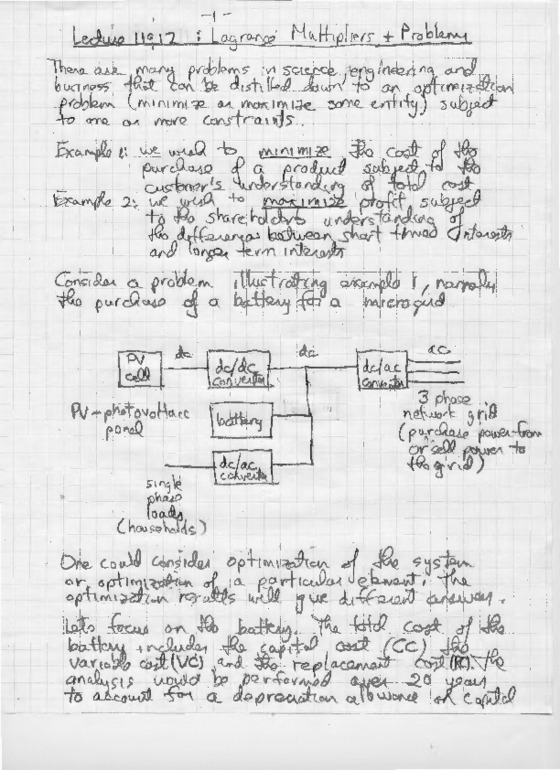 -1-
Lecture 11&12 : Lagrange Multipliers + Problems
There are many problems in science, engineering and
business that can be distilled down to an optimization
problem (minimize or maximize some entity) subject
to one or more constraints.
Example 1: we wish to minimize the cost of the
purchase of a product subject to the
customer's understanding of total cost
Example 2: we wish to maximize profit subject
to the shareholders understanding of
the differences between short timed interests
and longer term interests
Consider a problem illustrating example 1, namely
the purchase of a battery for a microgrid
PV cell
dc
dc/dc converter
dc
dc/ac converter
ac
PV - photovoltaic
panel
battery
3 phase
network grid
(purchase power from
or sell power to
the grid)
dc/ac converter
single
phase
loads
(households)
One could consider optimization of the system
or optimization of a particular element. The
optimization results will give different answers.
Lets focus on the battery. The total cost of the
battery includes the capital cost (CC) the
variable cost (VC) and the replacement cost (R). The
analysis would be performed over 20 years
to account for a depreciation allowance of capital